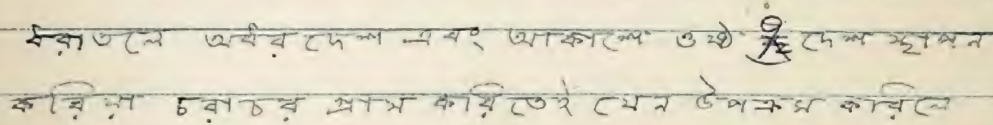 ধরাতলে অধর দেশ এবং আকাশে ওষ্ঠ দেশ স্থাপন
করিয়া চরাচর গ্রাস করিতেই যেন উপক্রম করিলে